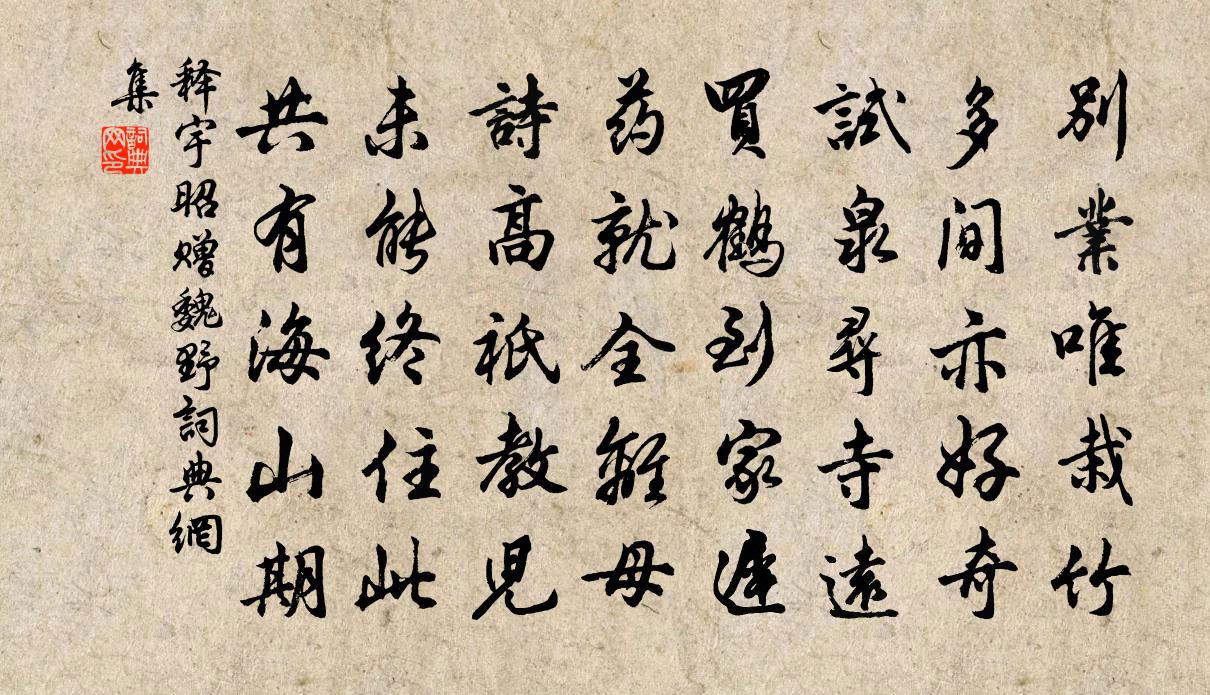 別業唯栽竹
多間亦好奇
試泉尋寺遠
買鶴到家遲
药就全離母
詩高祇教兒
未能終住此
共有海山期
释宇昭贈魏野詞典網
集
詞典网印